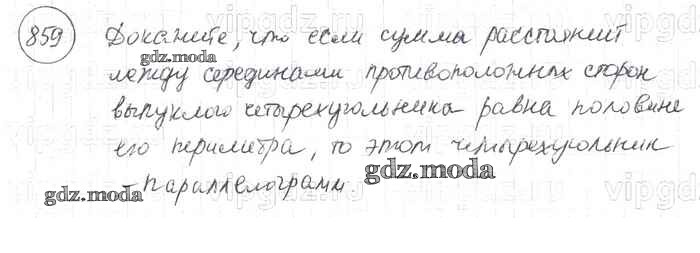 859 Докажите, что если сумма расстояний
gdz.moda
между серединами противоположных сторон
выпуклого четырехугольника равна половине
его периметра, то этот четырехугольник
gdz.moda
gdz.moda
- параллелограмм.